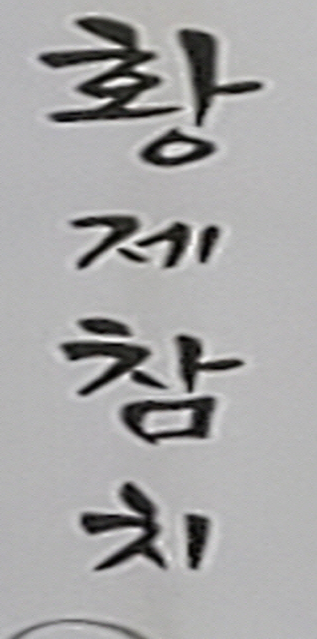 황제참치